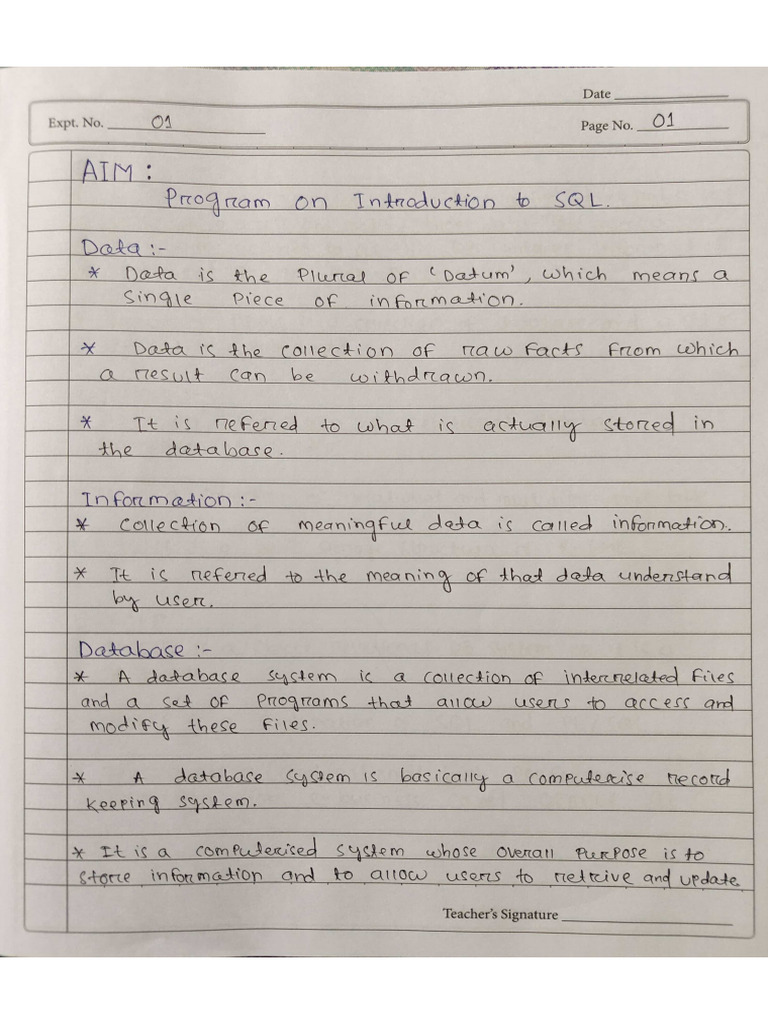 Date
Expt. No. 01
Page No. 01
AIM :
Program on Introduction to SQL.
Data :-
* Data is the Plural of 'Datum', which means a
single Piece of information.
* Data is the collection of raw facts from which
a result can be withdrawn.
* It is refered to what is actually stored in
the database.
Information :-
* Collection of meaningful data is called information.
* It is refered to the meaning of that data understand
by user.
Database :-
* A database system is a collection of interrelated files
and a set of Programs that allow users to access and
modify these files.
* A database system is basically a computerise record
keeping system.
* It is a computerised system whose overall purpose is to
store information and to allow users to retrive and update
Teacher's Signature